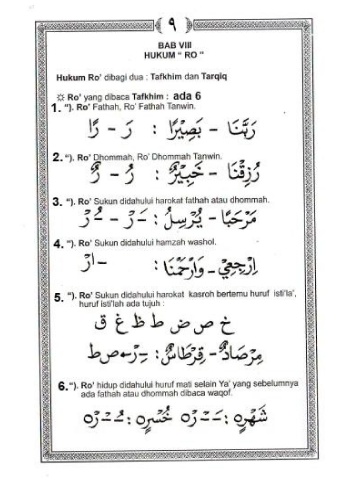 ٩
BAB VIII
HUKUM " RO "
Hukum Ro' dibagi dua : Tafkhim dan Tarqiq
☼ Ro' yang dibaca Tafkhim : ada 6
1. "). Ro' Fathah, Ro' Fathah Tanwin.
رَبَّنَا – بَصِيْرًا : رَ – رًا
2. "). Ro' Dhommah, Ro' Dhommah Tanwin.
رُزِقْنَا – خَبِيْرٌ : رُ – رٌ
3. "). Ro' Sukun didahului harokat fathah atau dhommah.
مَرْحَبًا – يُرْسِلُ : ـَرْ – ـُرْ
4. "). Ro' Sukun didahului hamzah washol.
اِرْجِعِيْ – وَارْحَمْنَا : – ارْ
5. "). Ro' Sukun didahului harokat kasroh bertemu huruf isti'la',
huruf isti'lah ada tujuh :
خ ص ض ط ظ غ ق
مِرْصَادٌ – قِرْطَاسٌ : ـِرْ – ص ط
6. "). Ro' hidup didahului huruf mati selain Ya' yang sebelumnya
ada fathah atau dhommah dibaca waqof.
شَهْرٍ : ـَـْر خُسْرٍ : ـُـْر